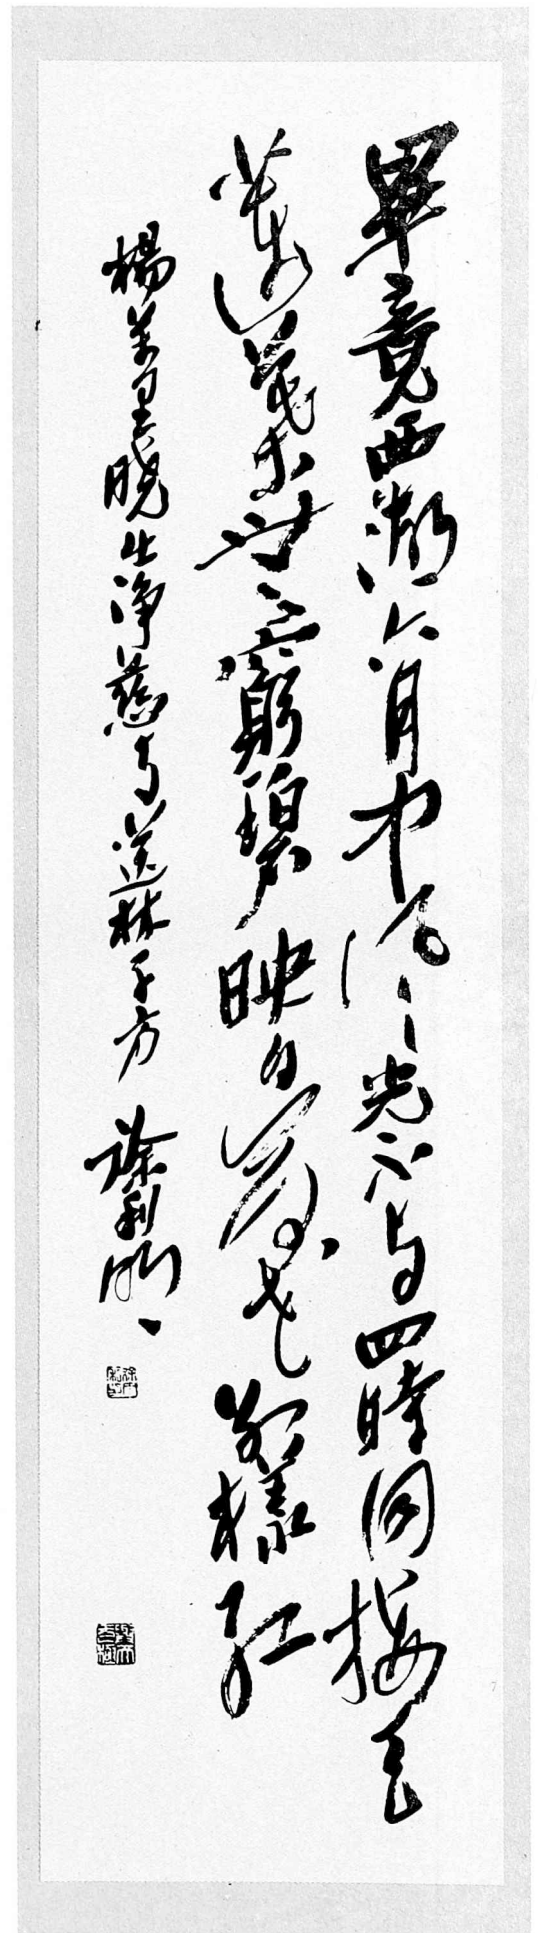 畢竟西湖六月中風光不與四時同接天
蓮葉無窮碧映日荷花別樣紅
楊萬里曉出淨慈寺送林子方 徐利明